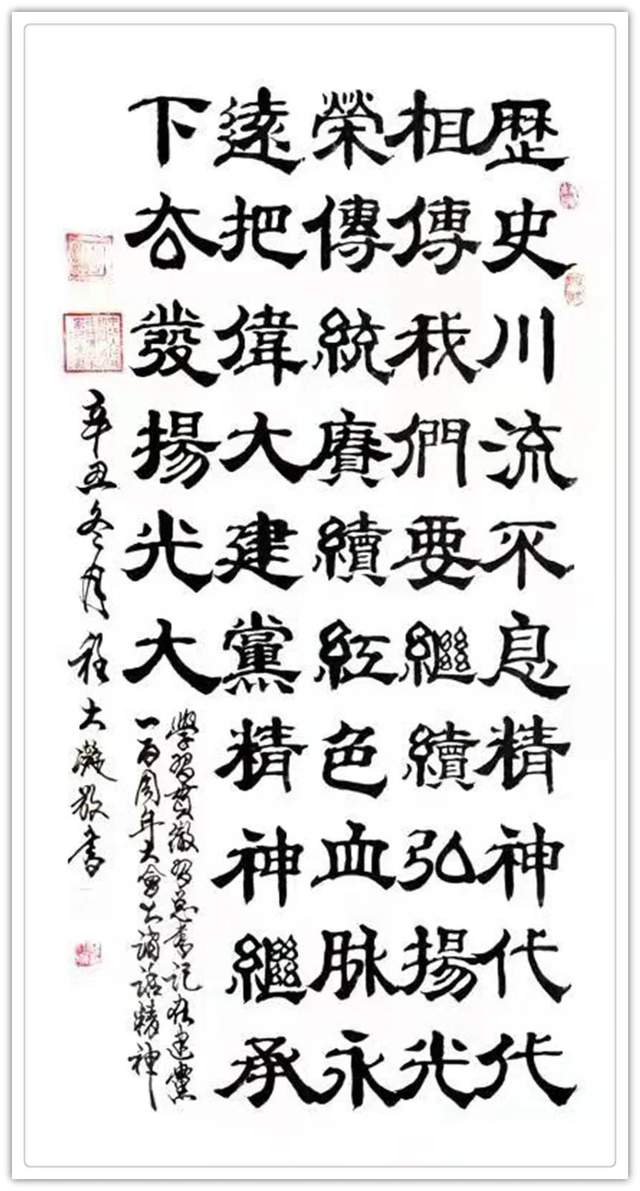 歷史川流不息精神代代
相傳我們要繼續弘揚光
榮傳統賡續紅色血脉永
遠把偉大建黨精神繼承
下去發揚光大
學習貫徹習总書記在建黨
一百周年大會上講話精神
辛丑冬月程大凝敬書